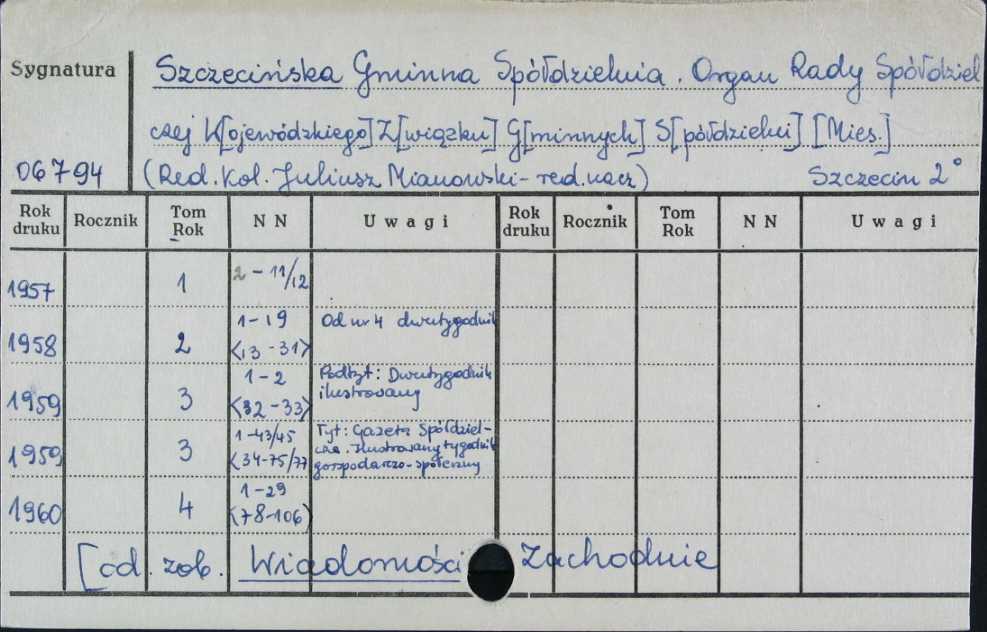 Sygnatura
Szczecińska Gminna Spółdzielnia. Organ Rady Spółdziel
czej W[ojewódzkiego] Z[wiązku] G[minnych] S[półdzielni] [Mies.]
06794 (Red. Kol. Juliusz Mianowski - red. nacz) Szczecin 2°
Rok druku Rocznik Tom Rok N N Uwagi Rok druku Rocznik Tom Rok N N Uwagi
1957 1 2 - 11/12
1958 2 1 - 19 <13 - 31> Od nr 4 dwutygodnik
1959 3 1 - 2 <32 - 33> Podtyt: Dwutygodnik ilustrowany
1959 3 1 - 43/45 <34-75/77 Tyt: Gazeta Spółdzielcza. Ilustrowany tygodnik gospodarczo-społeczny
1960 4 1 - 29 <78-106>
[cd. zob. Wiadomości Zachodnie